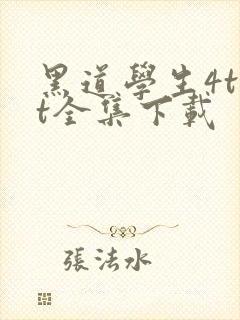 黑道學生4t
t全集下載
張法水